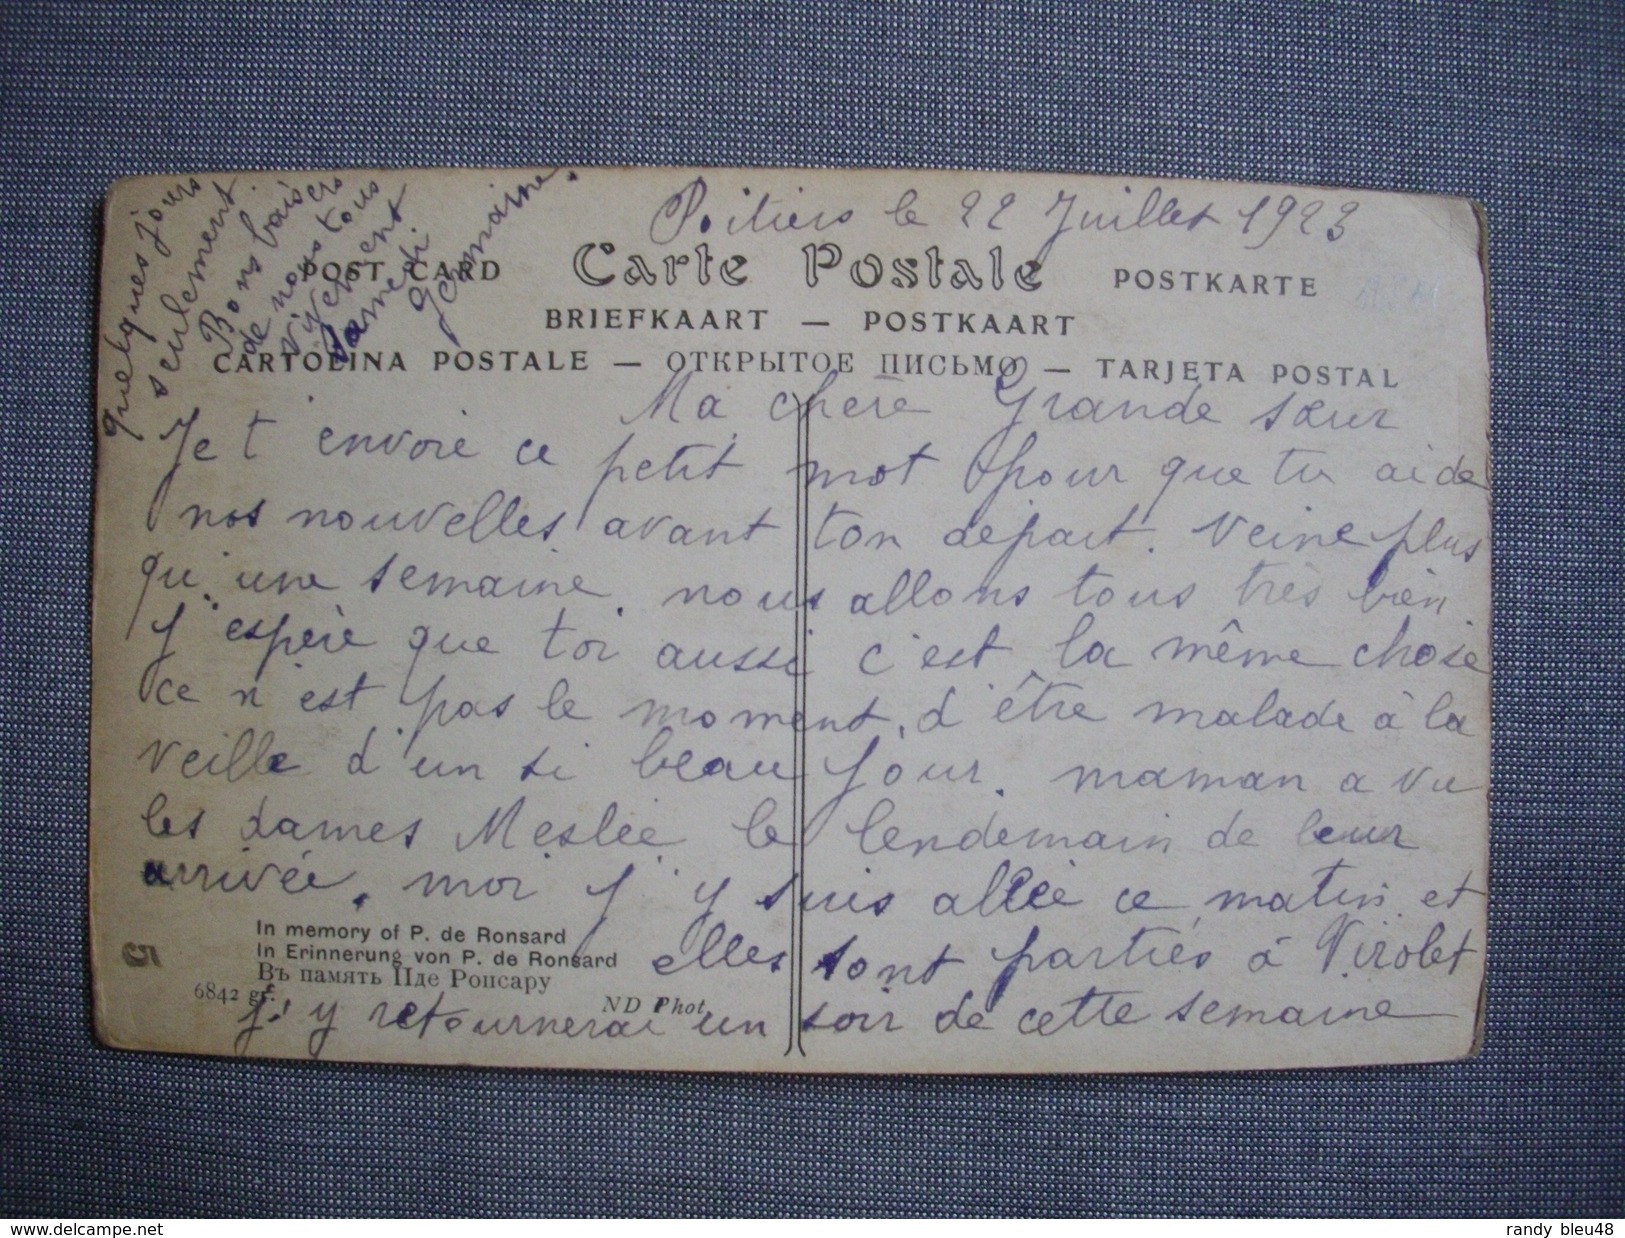 Poitiers le 22 Juillet 1923
POST CARD Carte Postale POSTKARTE
BRIEFKAART — POSTKAART
CARTOLINA POSTALE — ОТКРЫТОЕ ПИСЬМО — TARJETA POSTAL
Ma chère Grande sœur
Je t'envoie ce petit mot pour que tu ai de
nos nouvelles avant ton départ. Veine plus
qu'une semaine. nous allons tous très bien
J'espère que toi aussi c'est la même chose
ce n'est pas le moment, d'être malade à la
veille d'un si beau jour. maman a vu
les dames Meslée le lendemain de leur
arrivée, moi j'y suis allée ce matin et
elles sont parties à Virolet
j'y retournerai un soir de cette semaine
quelques jours
seulement.
Bons baisers
de nous tous
Vivement
Samedi
Germaine.
In memory of P. de Ronsard
In Erinnerung von P. de Ronsard
Въ память Пде Ронсару
6842 gf.
ND Phot.
5
www.delcampe.net
randy_bleu48